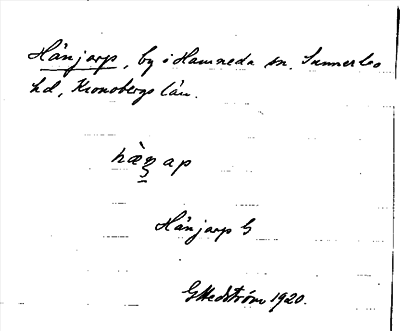 Hånjarp, by i Hamneda sn. Sunnerbo
hd, Kronobergs län.
Hånjarp G
GHedström 1920.